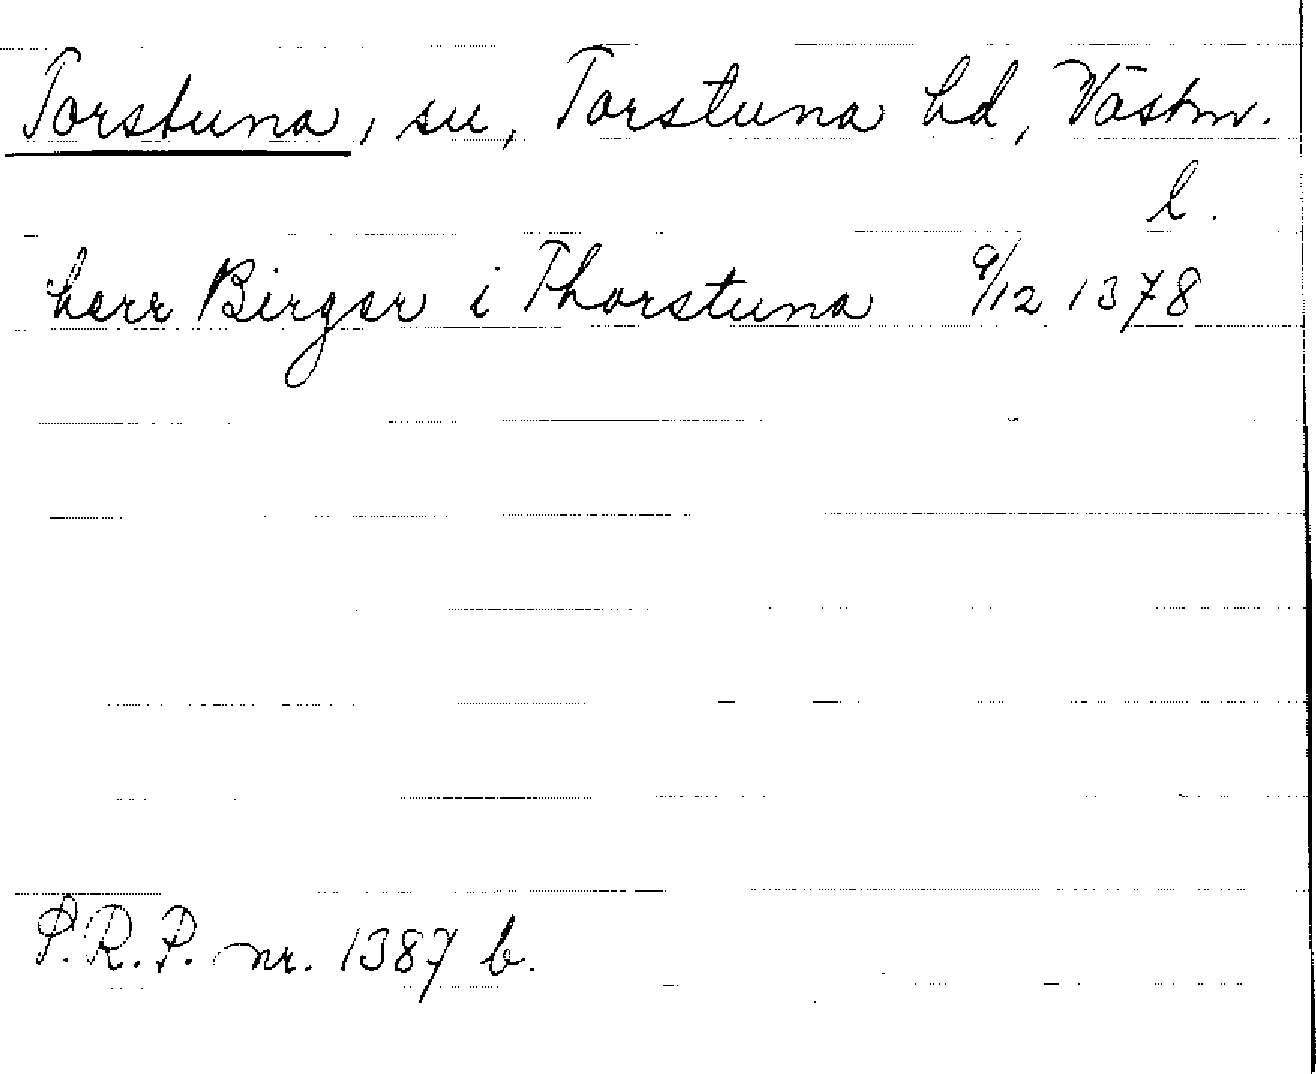 Torstuna, sn, Torstuna hd, Västm.
l.
herr Birger i Thorstuna 9/12 1378
P.R.P. nr. 1387 b.